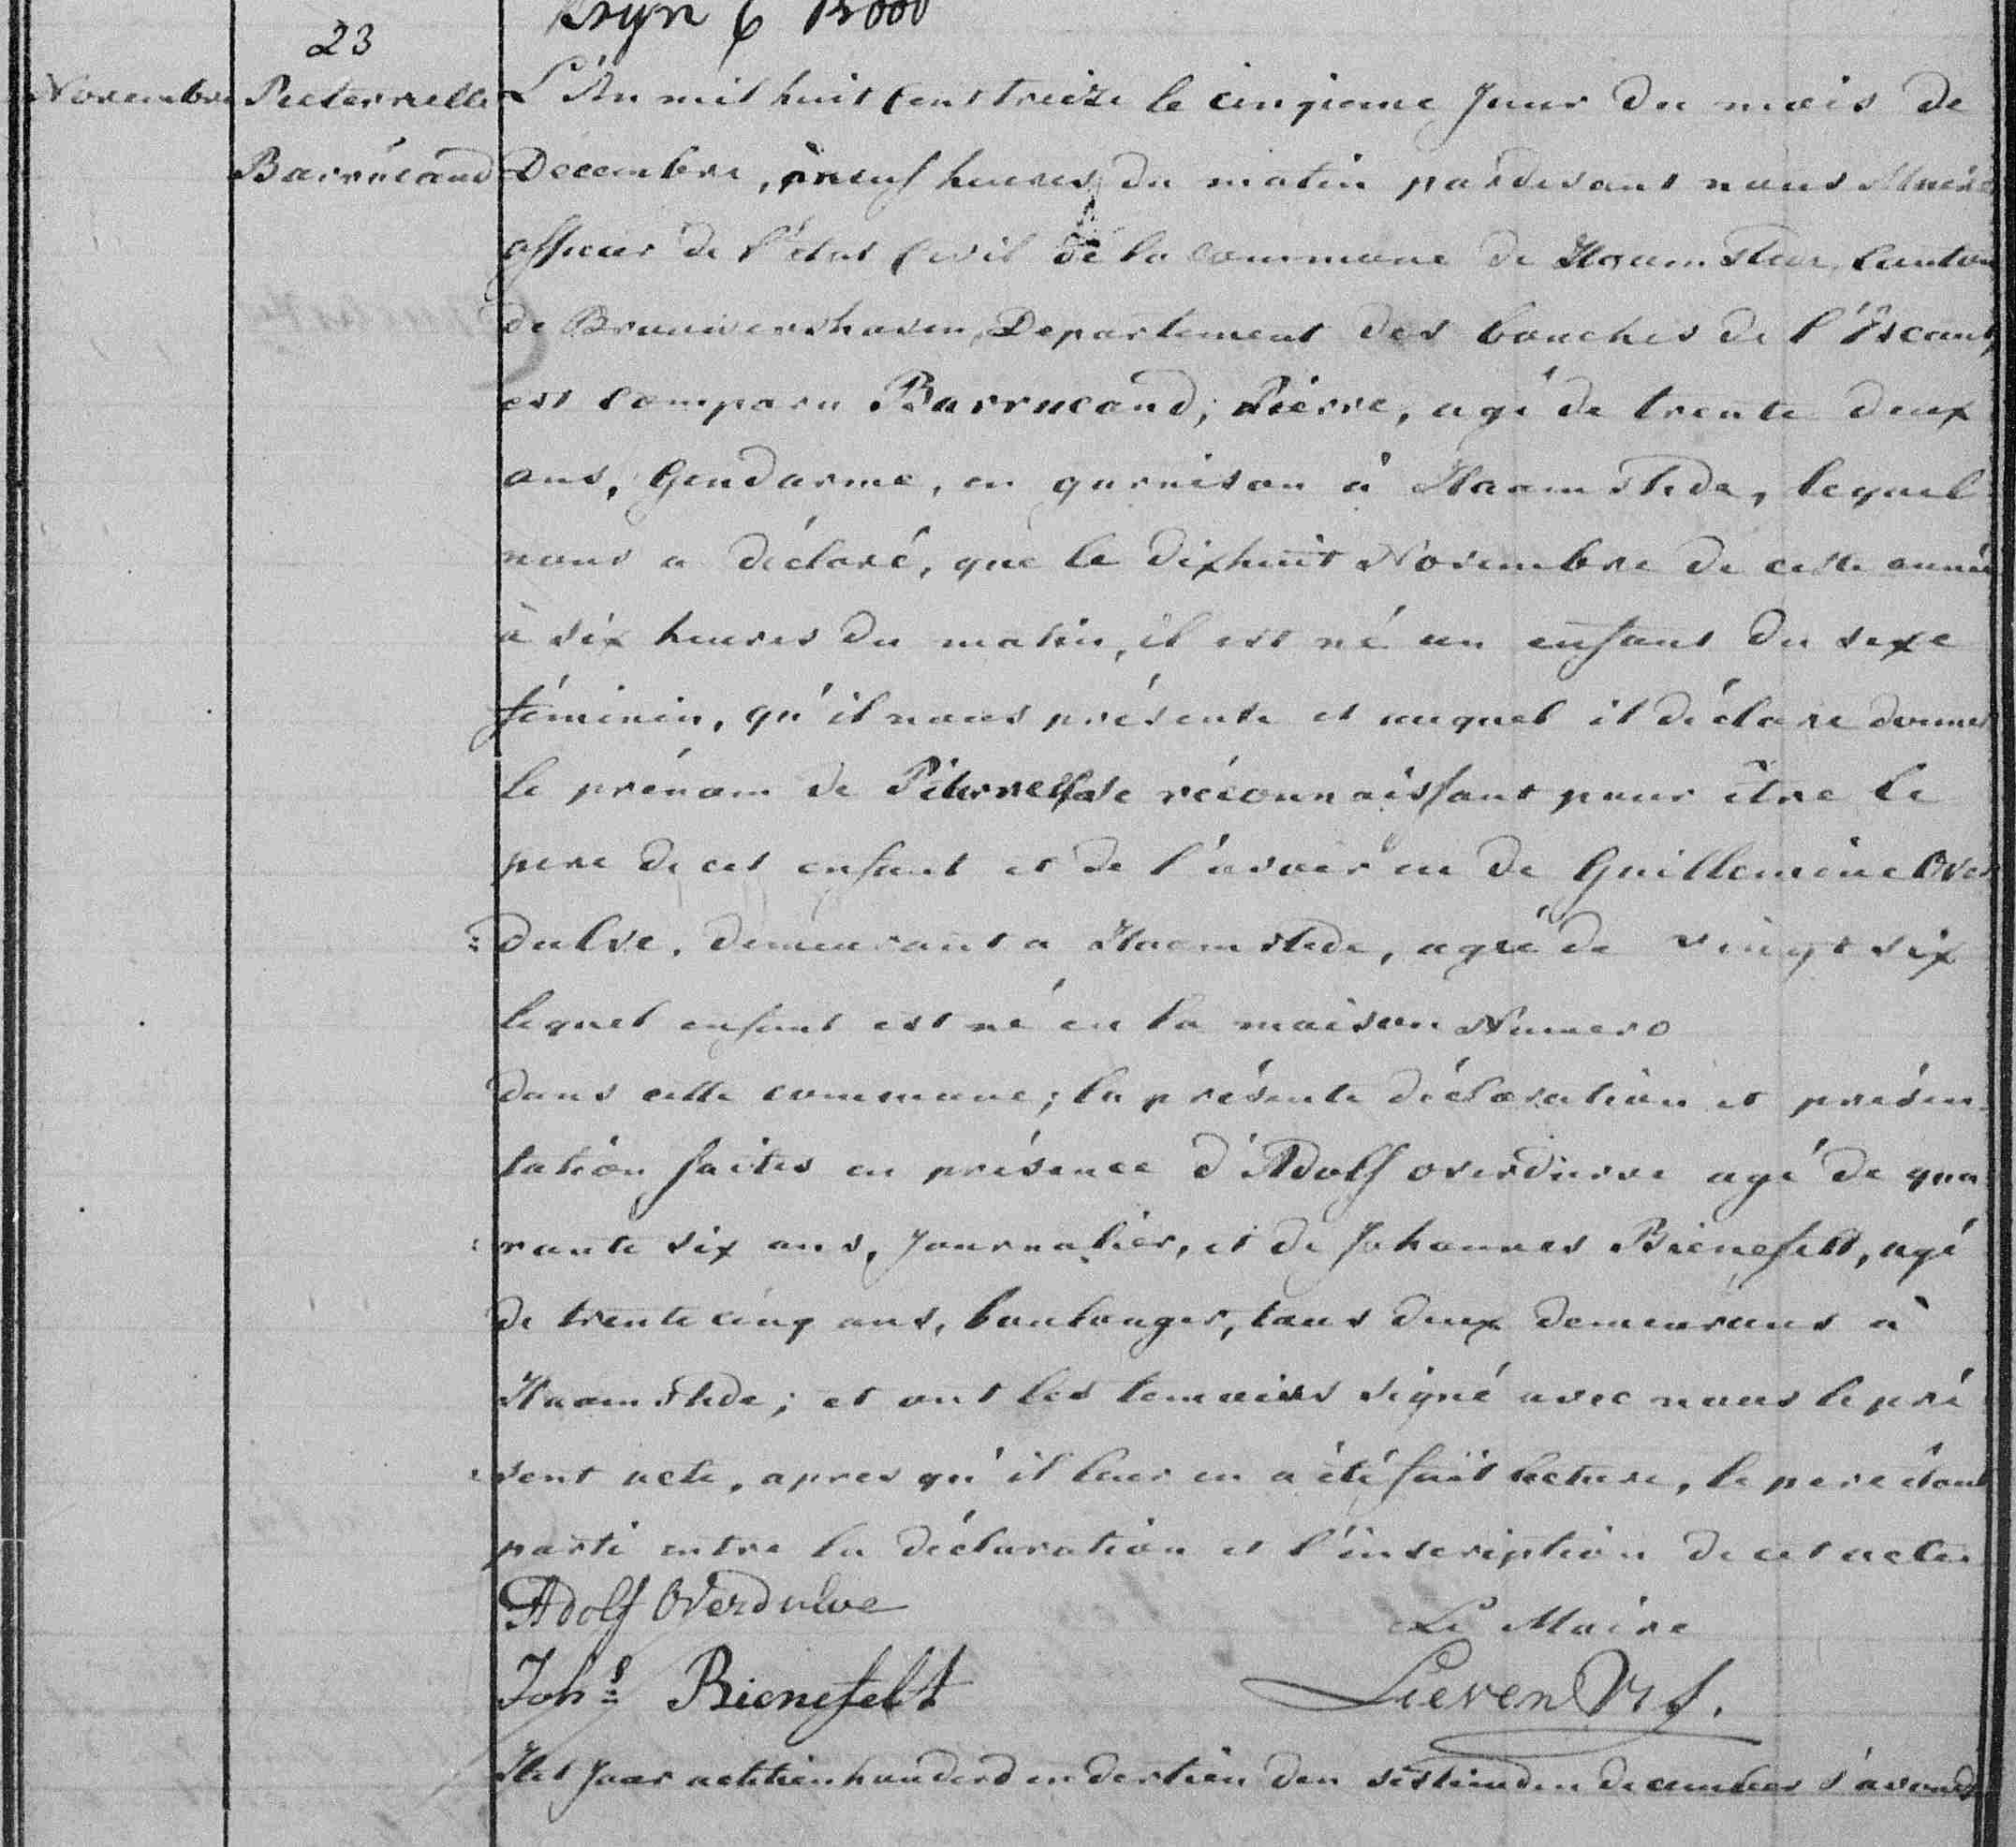 Kryn C Booo
23
Novembre Pieternelle
Barrucand
L'An mil huit cent treize le cinqieme Jour du mois de
Decembre, à neuf heures du matin pardevant nous Maire
officier de l'état Civil de la commune de Haamstede, Canton
de Brouwershaven, Departement des bouches de l'Escaut,
est comparu Barrucand, Piérre, agé de trente deux
ans, Gendarme, en garnison à Haamstede, lequel
nous a déclaré, que le dixhuit Novembre de cette année
à six heures du matin, il est né un enfant du sexe
féminin, qu'il nous présente et auquel il déclare donner
le prénom de se réconnaissant pour être le
pere de cet enfant et de l'avoir eu de Guillemine Over
=dulve, demeurant a Haemstede, agée de vingt six
lequel enfant est né en la maison Numero
dans cette commune; la présente déclaration et présen-
tation faites en présence d'Adolf overdurve agé de qua
=rante six ans, Journalier, et de Johannes Bienefelt, agé
de trente cinq ans, boulanger, tous deux demeurans à
Haamstede; et ont les temoins signé avec nous le pré
=sent acte, apres qu'il leur en a été fait lecture, le pere étant
parti entre la déclaration et l'inscription de cet acte.
Adolf Overdulve
Le Maire
Johs Bienefelt
Lieven
Het Jaar achttienhonderd en dertien den sestienden december s'avonds